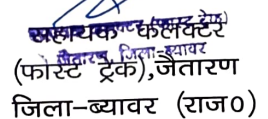 सहायक कलक्टर
(फास्ट ट्रैक),जैतारण
जिला-ब्यावर (राज०)